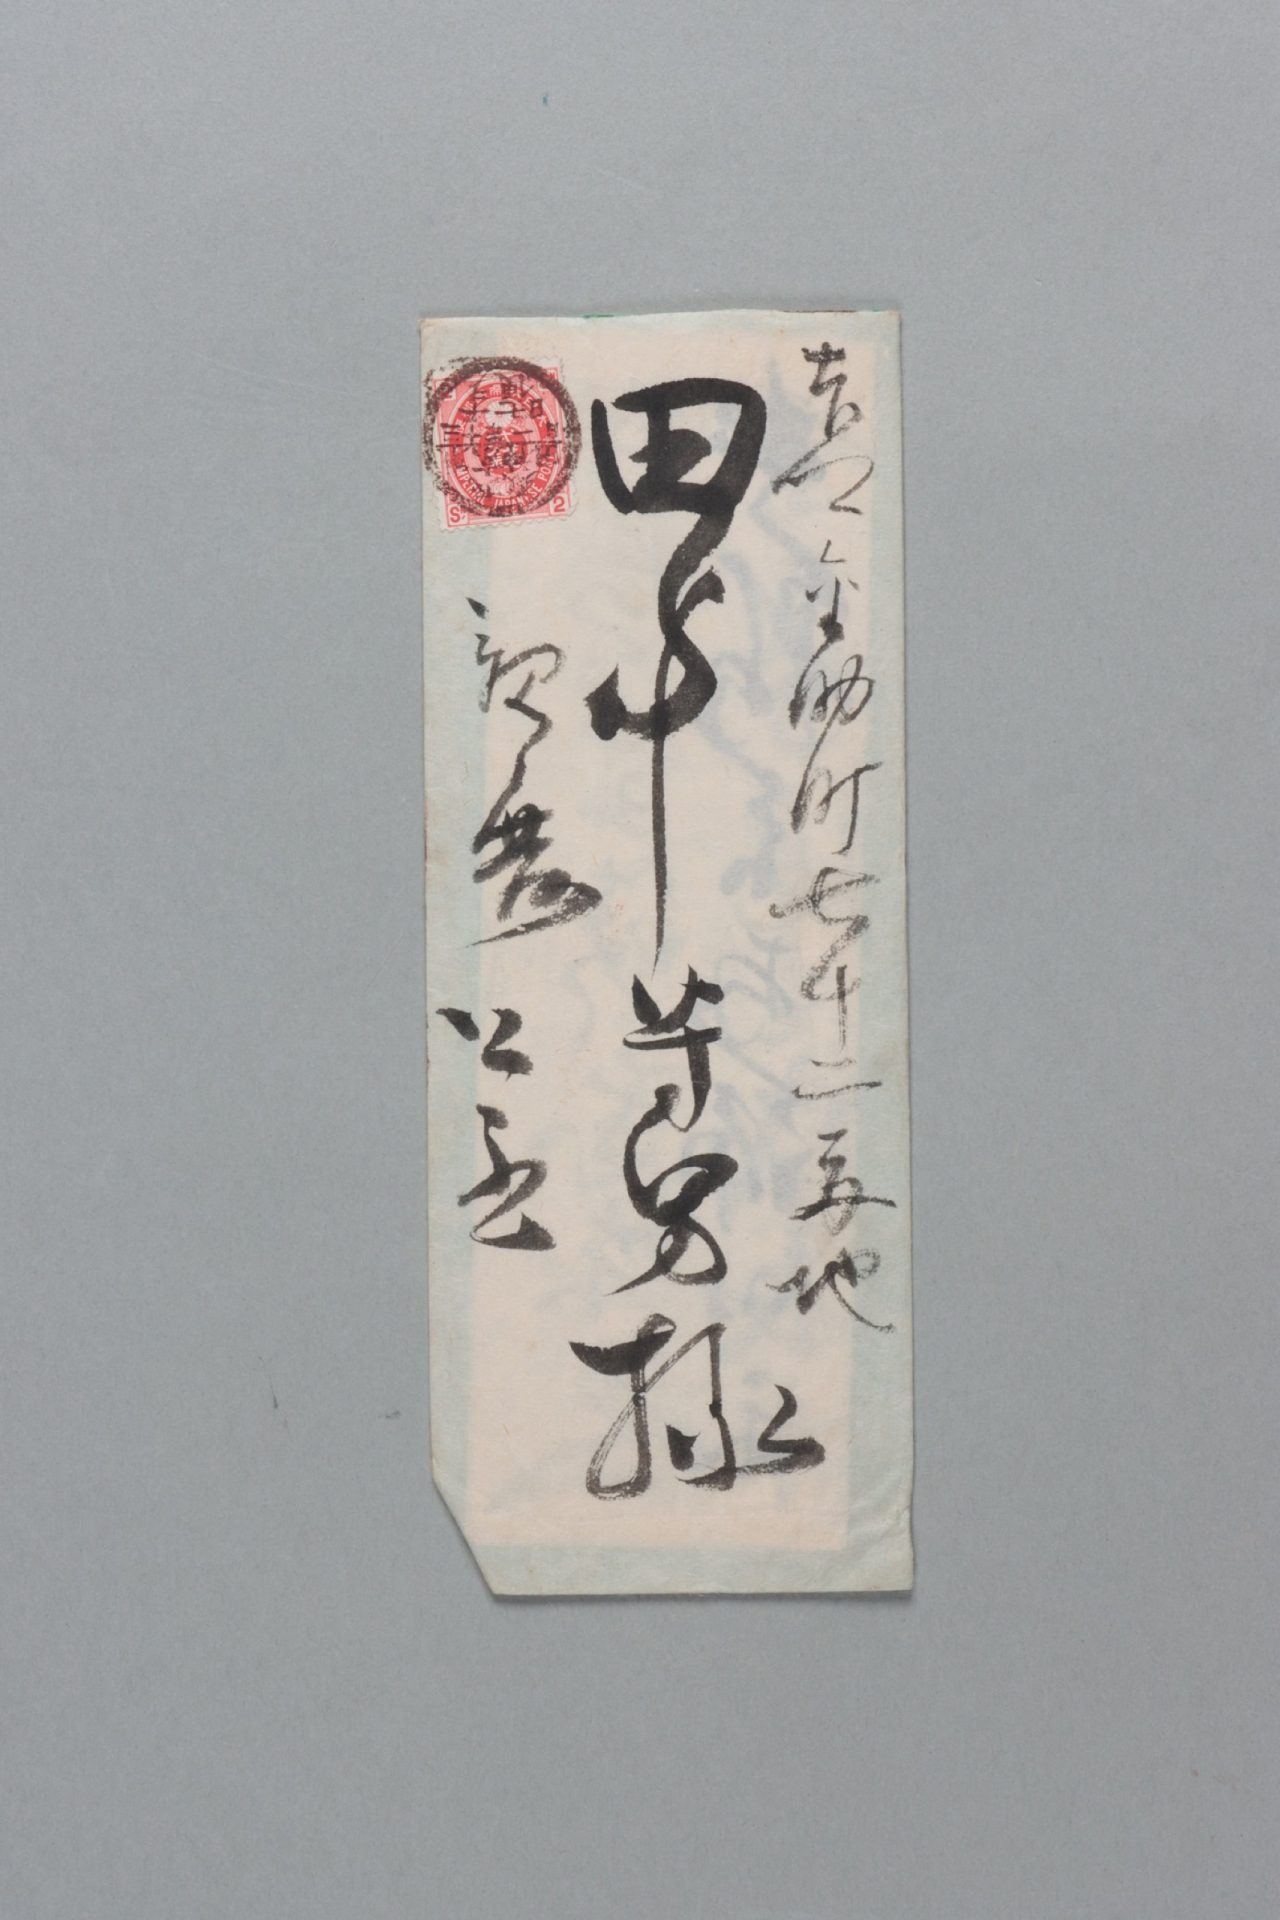 本郷金助町七十二番地
田中芳男様
親展
IMPERIAL JAPANESE POST
2